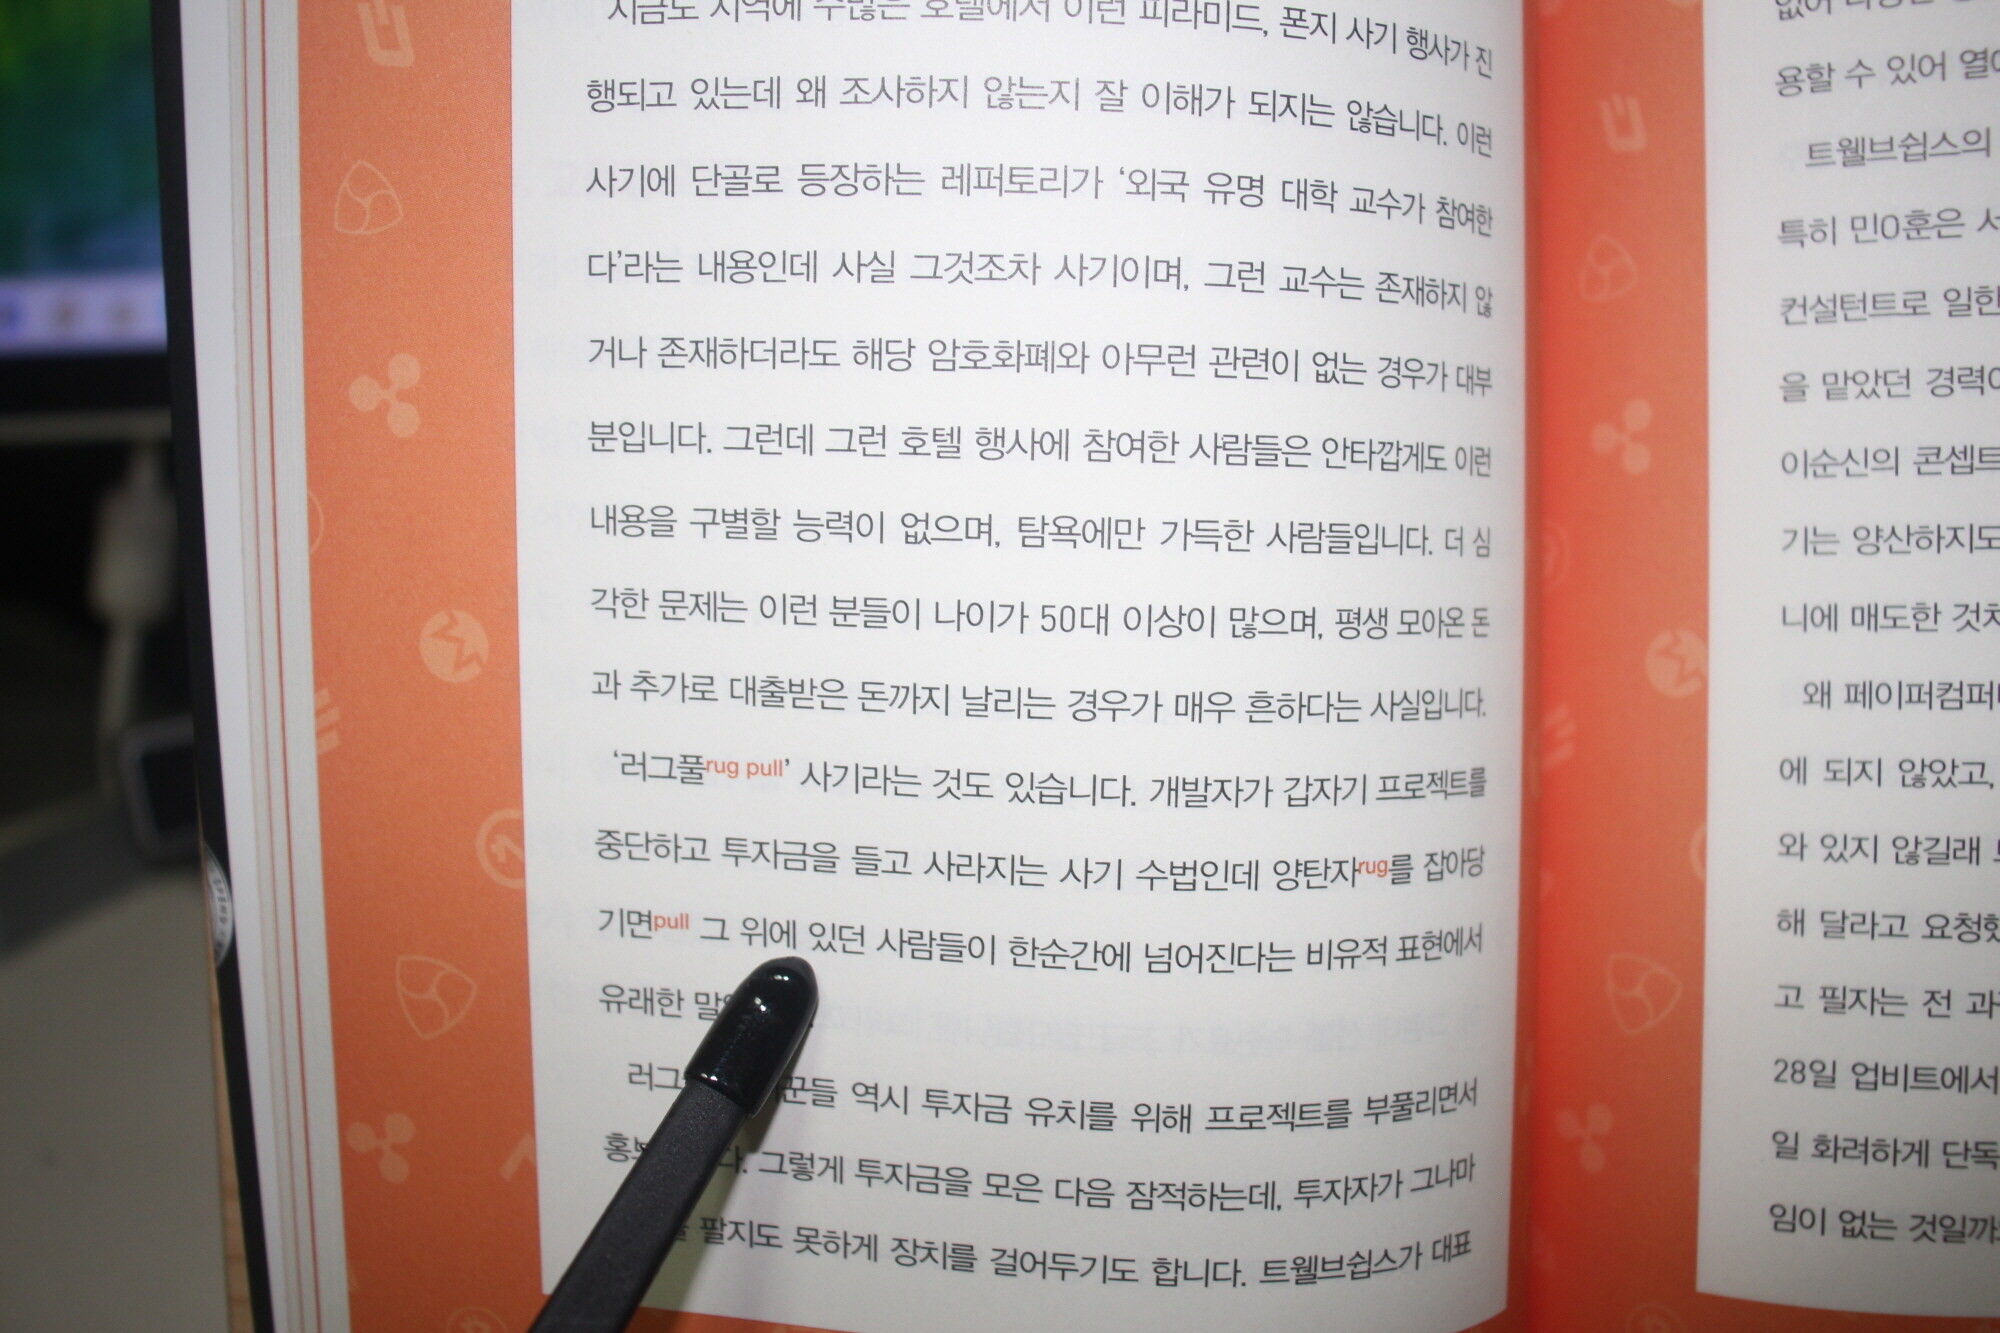 지금도 지역에 수많은 호텔에서 이런 피라미드, 폰지 사기 행사가 진
행되고 있는데 왜 조사하지 않는지 잘 이해가 되지는 않습니다. 이런
사기에 단골로 등장하는 레퍼토리가 ‘외국 유명 대학 교수가 참여한
다’라는 내용인데 사실 그것조차 사기이며, 그런 교수는 존재하지 않
거나 존재하더라도 해당 암호화폐와 아무런 관련이 없는 경우가 대부
분입니다. 그런데 그런 호텔 행사에 참여한 사람들은 안타깝게도 이런
내용을 구별할 능력이 없으며, 탐욕에만 가득한 사람들입니다. 더 심
각한 문제는 이런 분들이 나이가 50대 이상이 많으며, 평생 모아온 돈
과 추가로 대출받은 돈까지 날리는 경우가 매우 흔하다는 사실입니다.
‘러그풀rug pull’ 사기라는 것도 있습니다. 개발자가 갑자기 프로젝트를
중단하고 투자금을 들고 사라지는 사기 수법인데 양탄자rug를 잡아당
기면pull 그 위에 있던 사람들이 한순간에 넘어진다는 비유적 표현에서
유래한
역시 투자금 유치를 위해 프로젝트를 부풀리면서
그렇게 투자금을 모은 다음 잠적하는데, 투자자가 그나마
팔지도 못하게 장치를 걸어두기도 합니다. 트웰브쉽스가 대표
용할 수 있어
트웰브쉽스의
특히 민0훈은
컨설턴트로 일한
을 맡았던
이순신의
기는 양산하지도
니에 매도한
왜
에 되지 않았고,
와 있지 않길래
해 달라고
고 필자는 전
28일 업비트에서
일 화려하게 단독
임이 없는